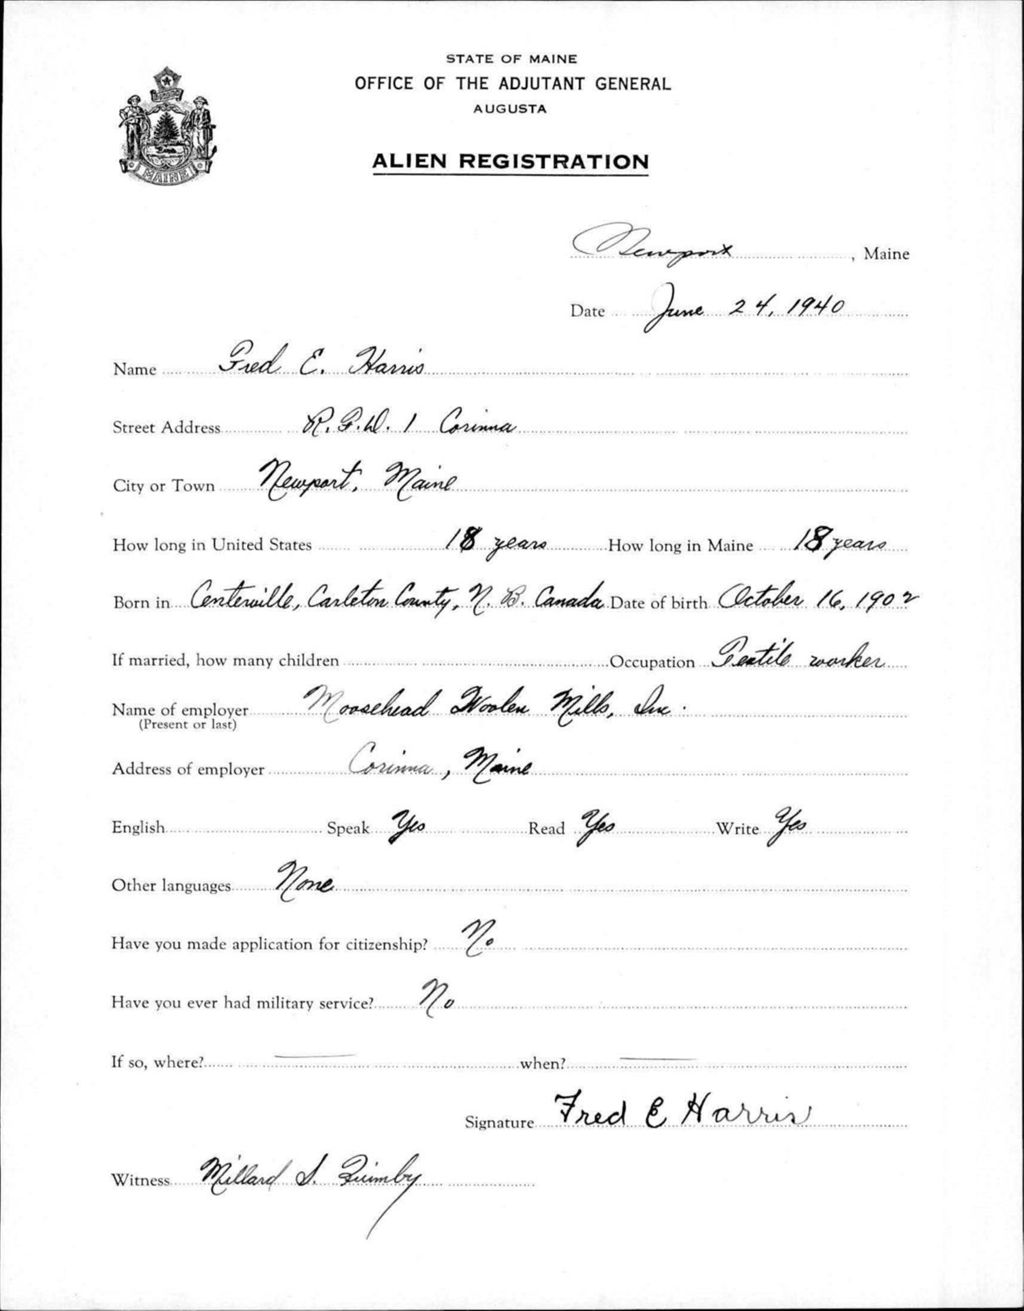 STATE OF MAINE
OFFICE OF THE ADJUTANT GENERAL
AUGUSTA
ALIEN REGISTRATION
MAINE
Newport, Maine
Date June 24, 1940
Name Fred E. Harris
Street Address R.F.D. 1 Corinna
City or Town Newport, Maine
How long in United States 18 years How long in Maine 18 years
Born in Centerville, Carleton County, N. B. Canada Date of birth October 16, 1902
If married, how many children Occupation Textile worker
Name of employer Moosehead Woolen Mills, Inc.
(Present or last)
Address of employer Corinna, Maine
English Speak Yes Read Yes Write Yes
Other languages None
Have you made application for citizenship? No
Have you ever had military service? No
If so, where? — when? —
Signature Fred E Harris
Witness Millard S. Quimby